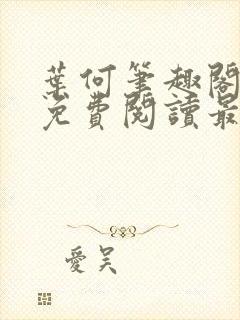 葉何筆趣閣
免費閱讀最
愛吴